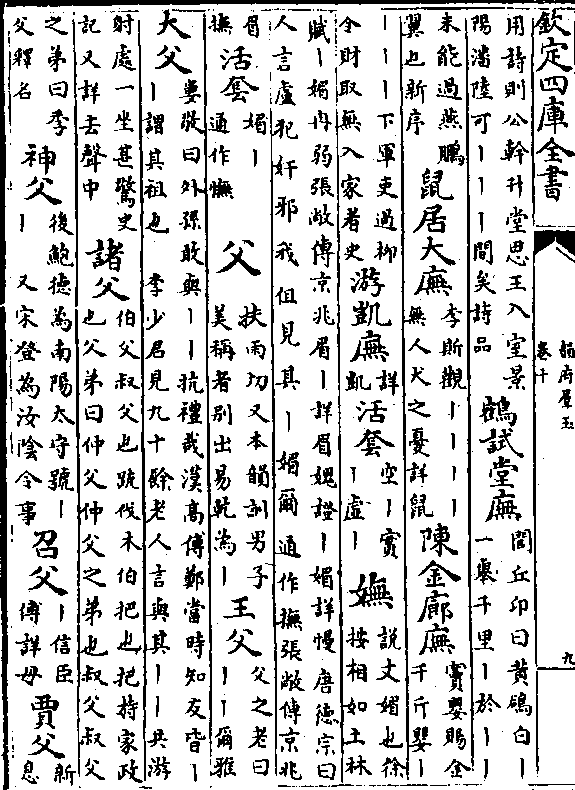 欽定四庫全書
韻府羣玉
卷十
九
用詩則公幹升堂思王入室景
陽潘陸可｜｜｜間矣詩品
鶴試堂廡
閭丘卬曰黄鵠白｜
一舉千里｜於｜｜
未能過燕鵬
翼也新序
鼠居大廡
李斯觀｜｜｜｜
無人犬之憂詳鼠
陳金廊廡
竇嬰賜金
千斤嬰｜
｜｜｜下軍吏過輙
令財取無入家者史
游凱廡
詳
凱
活套
空｜實
｜虛｜
嫵
說文媚也徐
按相如上林
賦｜媚冉弱張敞傳京兆眉｜詳眉嫓證｜媚詳慢唐德宗曰
人言盧犯奸邪我但見其｜媚爾通作撫張敞傳京兆
眉
撫
活套
媚｜
通作憮
父
扶雨切又本韻訓男子
美稱者别出易乾為｜
王父
父之老曰
｜｜爾雅
大父
婁敬曰外孫敢與｜｜抗禮哉漢高傳鄭當時知友皆｜
｜謂其祖也 李少君見九十餘老人言與其｜｜共游
射處一坐甚驚史
記又詳去聲中
諸父
伯父叔父也䟽伐木伯把也把持家政
也父弟曰仲父仲父之弟也叔父叔父
之弟曰季
父釋名
神父
後鮑德為南陽太守號｜
｜ 又宋登為汝陰令事
召父
｜信臣
傳詳母
賈父
新
息